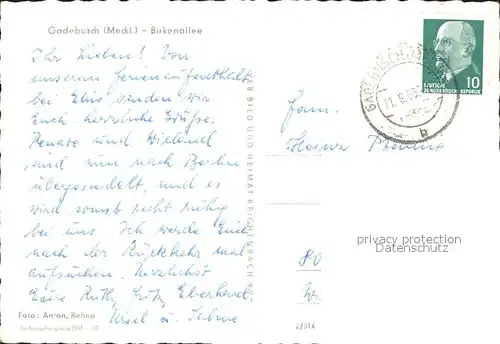 Gadebusch (Meckl.) – Birkenallee
Ihr Lieben! Von
unserem Ferienaufenthalt
bei Elis senden wir
Euch herzliche Grüße.
Renate und Wieland
sind nun nach Berlin
übergesiedelt, und es
wird sonst recht ruhig
bei uns. Ich werde Euch
nach der Rückkehr mal
aufsuchen. Herzlichst
Eure Ruth, Fritz, Eberhard,
Ursel u. Sabine
Foto: Anton, Rehna
VEB BILD UND HEIMAT REICHENBACH
DEUTSCHE
DEMOKRATISCHE REPUBLIK
10
GADEBUSCH
b
Fam.
Heinz
80
privacy protection
Datenschutz